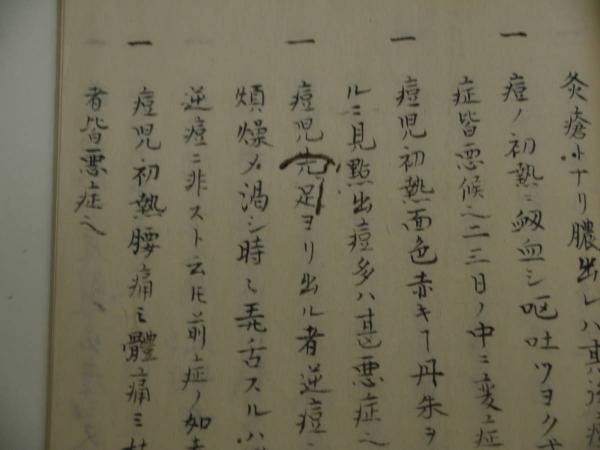 灸瘡ホトリ膿出レハ其後痘
一 痘ノ初熱ニ衂血シ呕吐ツヨク
症皆悪候也二三日ノ中ニ変症
一 痘児初熱面色赤キ丹朱ヲ
ルニ見點出痘多ハ甚悪症也
一 痘児先足ヨリ出ル者逆痘
煩燥メ渇シ時ニ弄舌スルハ
逆痘ニ非スト云ヒ前症ノ如
一 痘児初熱腰痛ミ體痛ミ
者皆悪症也